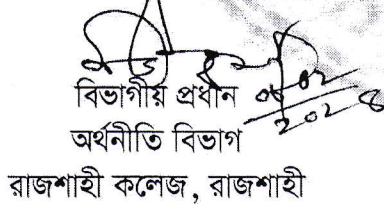 বিভাগীয় প্রধান
অর্থনীতি বিভাগ
রাজশাহী কলেজ, রাজশাহী